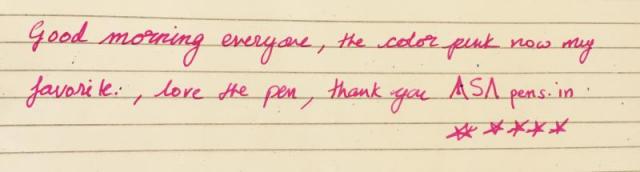 Good morning everyone, the color pink now my
favorite., love the pen, thank you ASA pens.in
*****